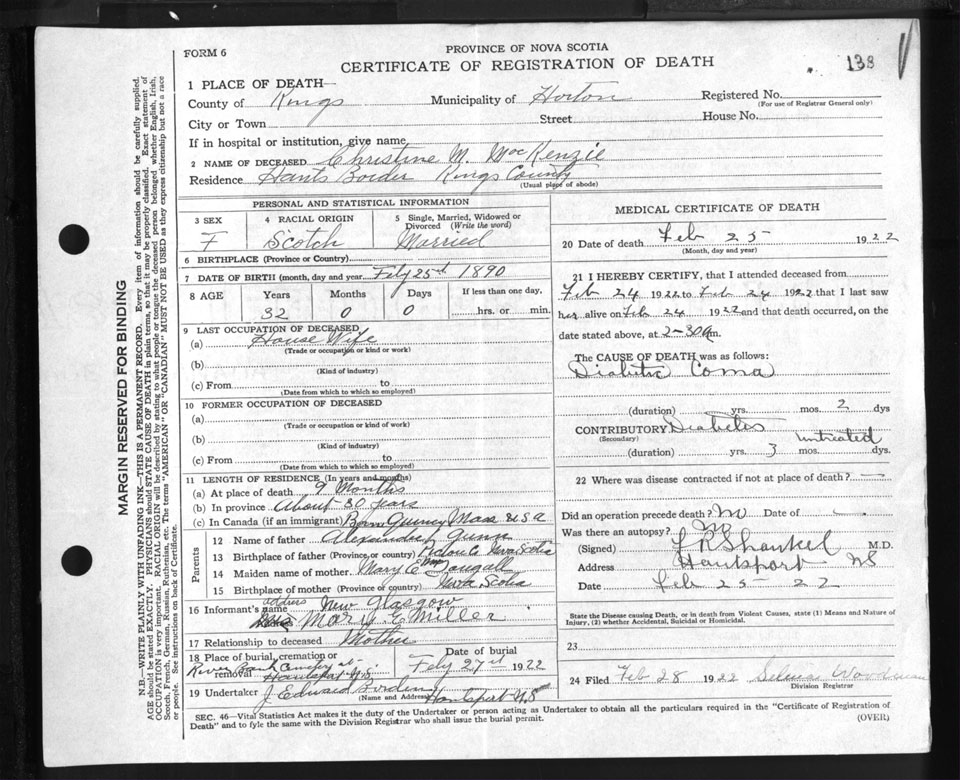 FORM 6
PROVINCE OF NOVA SCOTIA
CERTIFICATE OF REGISTRATION OF DEATH
138
1 PLACE OF DEATH—
County of Kings Municipality of Horton Registered No.
(For use of Registrar General only)
City or Town Street House No.
If in hospital or institution, give name
2 NAME OF DECEASED Christine M. MacKenzie
Residence Hants Border Kings County
(Usual place of abode)
PERSONAL AND STATISTICAL INFORMATION
3 SEX
F
4 RACIAL ORIGIN
Scotch
5 Single, Married, Widowed or
Divorced (Write the word)
Married
6 BIRTHPLACE (Province or Country)
7 DATE OF BIRTH (month, day and year) Feby 25th 1890
8 AGE Years Months Days If less than one day,
32 0 0 hrs. or min.
9 LAST OCCUPATION OF DECEASED
(a) House Wife
(Trade or occupation or kind or work)
(b)
(Kind of industry)
(c) From to
(Date from which to which so employed)
10 FORMER OCCUPATION OF DECEASED
(a)
(Trade or occupation or kind of work)
(b)
(Kind of industry)
(c) From to
(Date from which to which so employed)
11 LENGTH OF RESIDENCE (In years and months)
(a) At place of death 9 Months
(b) In province About 30 years
(c) In Canada (if an immigrant) Born Quincy Mass U S A
Parents
12 Name of father Alexander Gunn
13 Birthplace of father (Province or country) Pictou Co Nova Scotia
14 Maiden name of mother Mary E McDougall
15 Birthplace of mother (Province or country) Nova Scotia
16 Informant's name address New Glasgow
Mary E Miller
17 Relationship to deceased Mother
18 Place of burial, cremation or
removal River Bank Cemetery at
Hantsport N.S.
Date of burial
Feby 27th 1922
19 Undertaker J Edward
(Name and Address) Hantsport N.S
MEDICAL CERTIFICATE OF DEATH
20 Date of death Feb 25 1922
(Month, day and year)
21 I HEREBY CERTIFY, that I attended deceased from
Feb 24 1922 to Feb 24 1922 that I last saw
her alive on Feb 24 1922 and that death occurred, on the
date stated above, at 2-30 a m.
The CAUSE OF DEATH was as follows:
Diabetic Coma
(duration) yrs. mos. 2 dys
CONTRIBUTORY Diabetes
(Secondary) untreated
(duration) yrs. 3 mos dys
22 Where was disease contracted if not at place of death? —
Did an operation precede death? No Date of —
Was there an autopsy? No
(Signed) Shankel M.D.
Address Hantsport NS
Date Feb 25 22
State the Disease causing Death, or in death from Violent Causes, state (1) Means and Nature of
Injury, (2) whether Accidental, Suicidal or Homicidal.
23
24 Filed Feb 28 1922 Selina Woodman
Division Registrar
SEC. 46—Vital Statistics Act makes it the duty of the Undertaker or person acting as Undertaker to obtain all the particulars required in the "Certificate of Registration of
Death" and to fyle the same with the Division Registrar who shall issue the burial permit.
(OVER)
MARGIN RESERVED FOR BINDING
N.B.—WRITE PLAINLY WITH UNFADING INK—THIS IS A PERMANENT RECORD. Every item of information should be carefully supplied.
AGE should be stated EXACTLY. PHYSICIANS should STATE CAUSE OF DEATH in plain terms, so that it may be properly classified. Exact statement of
OCCUPATION is very important. RACIAL ORIGIN will be described by stating to what people or tongue the deceased person belonged whether English, Irish,
Scotch, French, German, Russian, Ruthenian, etc. The terms "AMERICAN" OR "CANADIAN" MUST NOT BE USED as they express citizenship but not a race
or people. See instructions on back of Certificate.